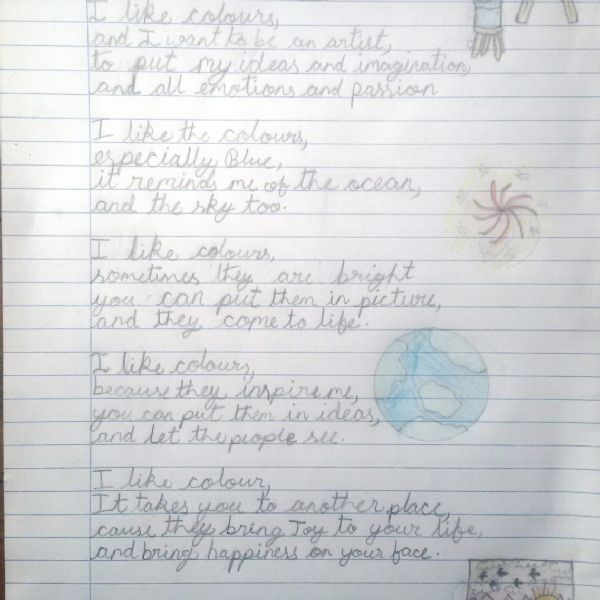 I like colours,
and I want to be an artist,
to put my ideas and imagination,
and all emotions and passion
I like the colours,
especially Blue,
it reminds me of the ocean,
and the sky too.
I like colours,
sometimes they are bright
you can put them in picture,
and they come to life.
I like colours,
because they inspire me,
you can put them in ideas,
and let the people see.
I like colour,
It takes you to another place,
cause they bring Joy to your life,
and bring happiness on your face.